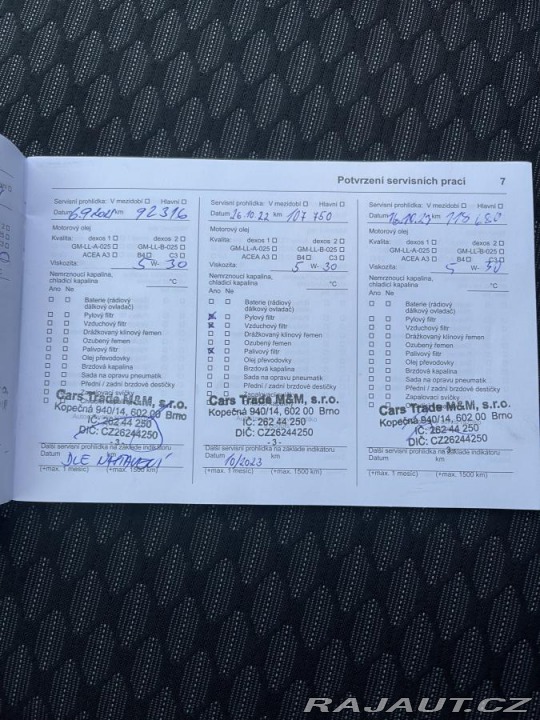 Potvrzení servisních prací 7
Servisní prohlídka: V mezidobí Hlavní
Datum 6.9 2021 km 92316
Motorový olej
Kvalita: dexos 1 dexos 2
GM-LL-A-025 GM-LL-B-025
ACEA A3 B4 C3
Viskozita: 5 W- 30
Nemrznoucí kapalina,
chladicí kapalina °C
Ano Ne
Baterie (rádiový
dálkový ovladač)
Pylový filtr
Vzduchový filtr
Drážkovaný klínový řemen
Ozubený řemen
Palivový filtr
Olej převodovky
Brzdová kapalina
Sada na opravu pneumatik
Přední / zadní brzdové destičky
Zapalovací svíčky
Cars Trade M&M, s.r.o.
Kopečná 940/14, 602 00 Brno
IČ: 262 44 250
DIČ: CZ26244250
- 3 -
Další servisní prohlídka na základě indikátoru
Datum km
DLE NASTAVENÍ
(+max. 1 měsíc) (+max. 1500 km)
Servisní prohlídka: V mezidobí Hlavní
Datum 26.10.22 km 107 750
Motorový olej
Kvalita: dexos 1 dexos 2
GM-LL-A-025 GM-LL-B-025
ACEA A3 B4 C3
Viskozita: 5 W- 30
Nemrznoucí kapalina,
chladicí kapalina °C
Ano Ne
Baterie (rádiový
dálkový ovladač)
Pylový filtr
Vzduchový filtr
Drážkovaný klínový řemen
Ozubený řemen
Palivový filtr
Olej převodovky
Brzdová kapalina
Sada na opravu pneumatik
Přední / zadní brzdové destičky
Zapalovací svíčky
Cars Trade M&M, s.r.o.
Kopečná 940/14, 602 00 Brno
IČ: 262 44 250
DIČ: CZ26244250
- 3 -
Další servisní prohlídka na základě indikátoru
Datum 10/2023 km
(+max. 1 měsíc) (+max. 1500 km)
Servisní prohlídka: V mezidobí Hlavní
Datum km
Motorový olej
Kvalita: dexos 1 dexos 2
GM-LL-A-025 GM-LL-B-025
ACEA A3 B4 C3
Viskozita: 5 W- 30
Nemrznoucí kapalina,
chladicí kapalina °C
Ano Ne
Baterie (rádiový
dálkový ovladač)
Pylový filtr
Vzduchový filtr
Drážkovaný klínový řemen
Ozubený řemen
Palivový filtr
Olej převodovky
Brzdová kapalina
Sada na opravu pneumatik
Přední / zadní brzdové destičky
Zapalovací svíčky
Cars Trade M&M, s.r.o.
Kopečná 940/14, 602 00 Brno
IČ: 262 44 250
DIČ: CZ26244250
Další servisní prohlídka na základě indikátoru
Datum km
(+max. 1 měsíc) (+max. 1500 km)
RAJAUT.CZ